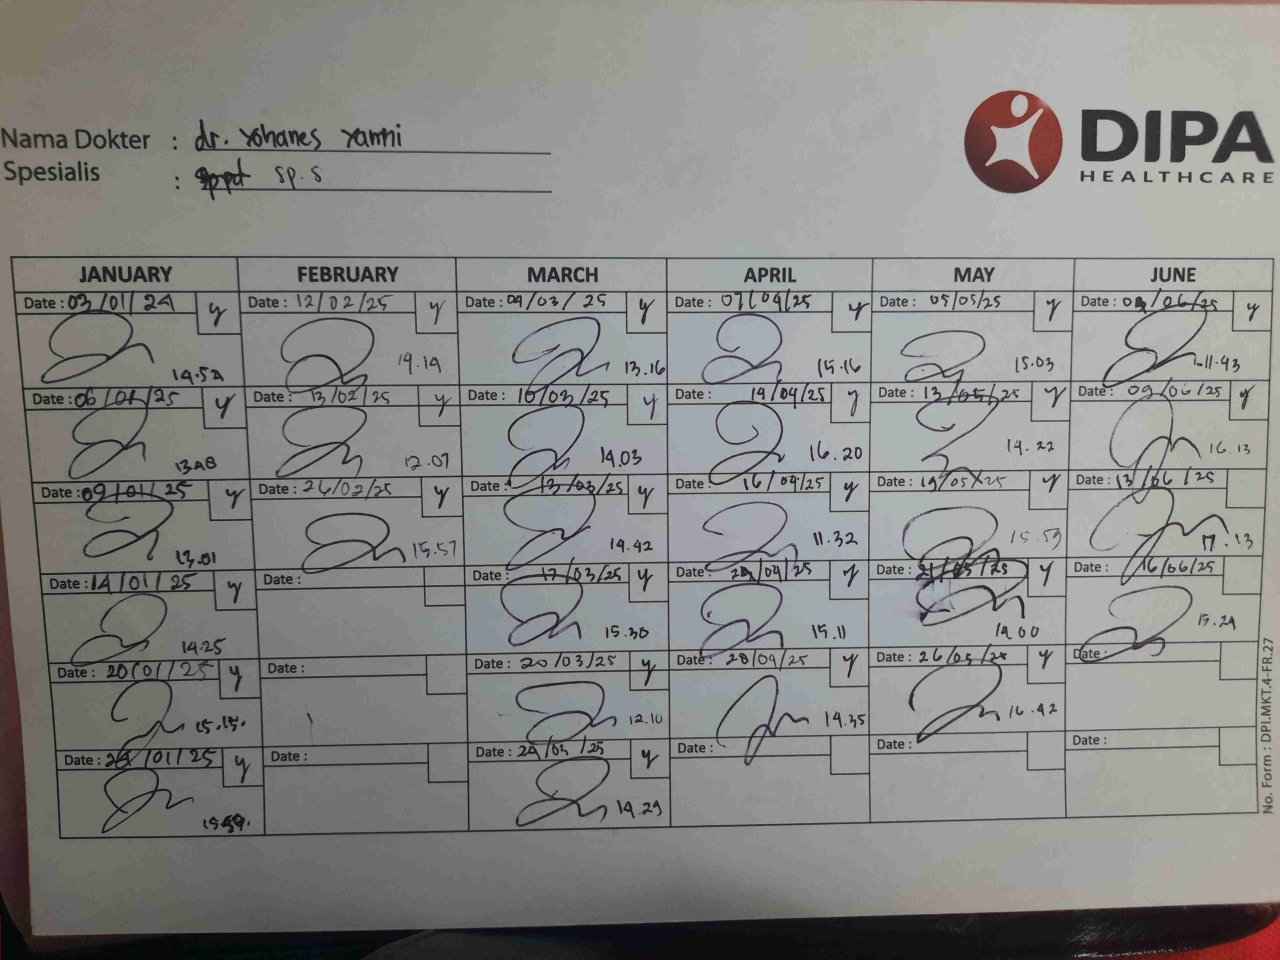 DIPA
HEALTHCARE
Nama Dokter : dr. Yohanes Yanni
Spesialis : sppd sp.s
JANUARY FEBRUARY MARCH APRIL MAY JUNE
Date : 03/01/24 y Date : 12/02/25 y Date : 04/03/25 y Date : 07/04/25 y Date : 05/05/25 y Date : /06/25 y
14.52 14.14 13.16 15.16 15.03 11.43
Date : 06/01/25 y Date : 13/02/25 y Date : 10/03/25 y Date : 14/04/25 y Date : 13/05/25 y Date : 09/06/25 y
12.07 14.03 16.20 14.22 16.13
Date : 09/01/25 y Date : 26/02/25 y Date : 13/03/25 y Date : 16/04/25 y Date : 19/05/25 y Date : 13/06/25
13.01 15.57 14.42 11.32 15.53 17.13
Date : 14/01/25 y Date : Date : 17/03/25 y Date : /04/25 y Date : 21/05/25 y Date : 16/06/25
14.25 15.30 15.11 14.00 15.24
Date : 20/01/25 y Date : Date : 20/03/25 y Date : 28/04/25 y Date : 26/05/25 y Date :
15.15. 12.10 14.35 16.42
Date : 24/01/25 y Date : Date : 24/03/25 y Date : Date : Date :
14.29
No. Form : DPI.MKT.4-FR.27